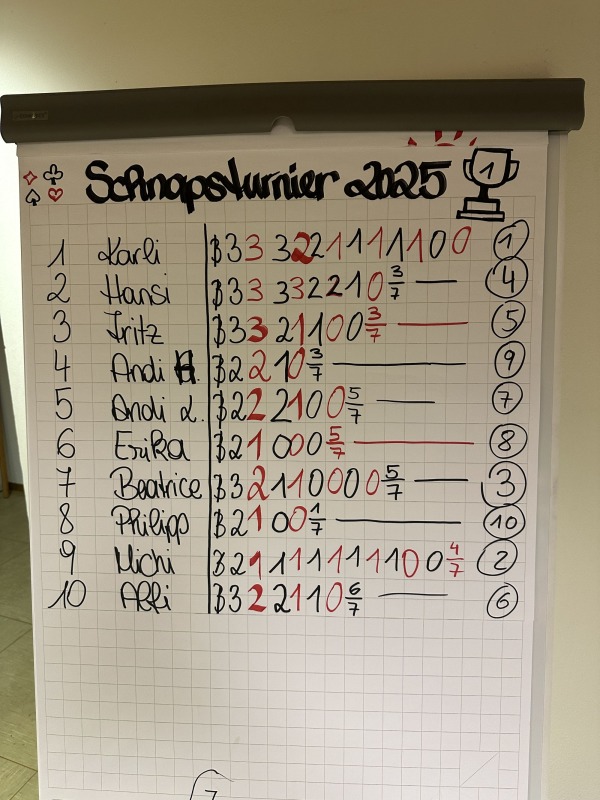 Schnapsturnier 2025 1
1 Karli $ 3 3 3 2 2 1 1 1 1 1 1 0 0 1
2 Hansi $ 3 3 3 3 2 2 1 0 3/7 4
3 Fritz $ 3 3 2 1 1 0 0 3/7 5
4 Andi H. $ 2 2 1 0 3/7 9
5 Andi L. $ 2 2 2 1 0 0 5/7 7
6 Erika $ 2 1 0 0 0 5/7 8
7 Beatrice $ 3 2 1 1 0 0 0 0 5/7 3
8 Philipp $ 2 1 0 0 1/7 10
9 Michi $ 2 1 1 1 1 1 1 1 1 0 0 4/7 2
10 Alfi $ 3 2 2 1 1 0 6/7 6
7